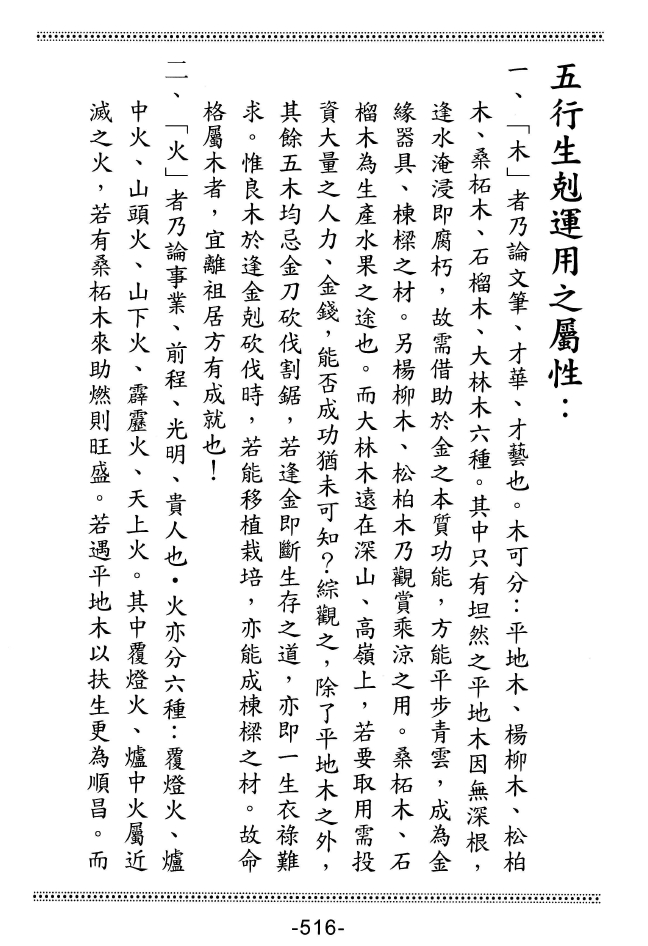 五行生剋運用之屬性：
一、「木」者乃論文筆、才華、才藝也。木可分：平地木、楊柳木、松柏
木、桑柘木、石榴木、大林木六種。其中只有坦然之平地木因無深根，
逢水淹浸即腐朽，故需借助於金之本質功能，方能平步青雲，成為金
緣器具、棟樑之材。另楊柳木、松柏木乃觀賞乘涼之用。桑柘木、石
榴木為生產水果之途也。而大林木遠在深山、高嶺上，若要取用需投
資大量之人力、金錢，能否成功猶未可知？綜觀之，除了平地木之外，
其餘五木均忌金刀砍伐割鋸，若逢金即斷生存之道，亦即一生衣祿難
求。惟良木於逢金剋砍伐時，若能移植栽培，亦能成棟樑之材。故命
格屬木者，宜離祖居方有成就也！
二、「火」者乃論事業、前程、光明、貴人也·火亦分六種：覆燈火、爐
中火、山頭火、山下火、霹靂火、天上火。其中覆燈火、爐中火屬近
滅之火，若有桑柘木來助燃則旺盛。若遇平地木以扶生更為順昌。而
-516-